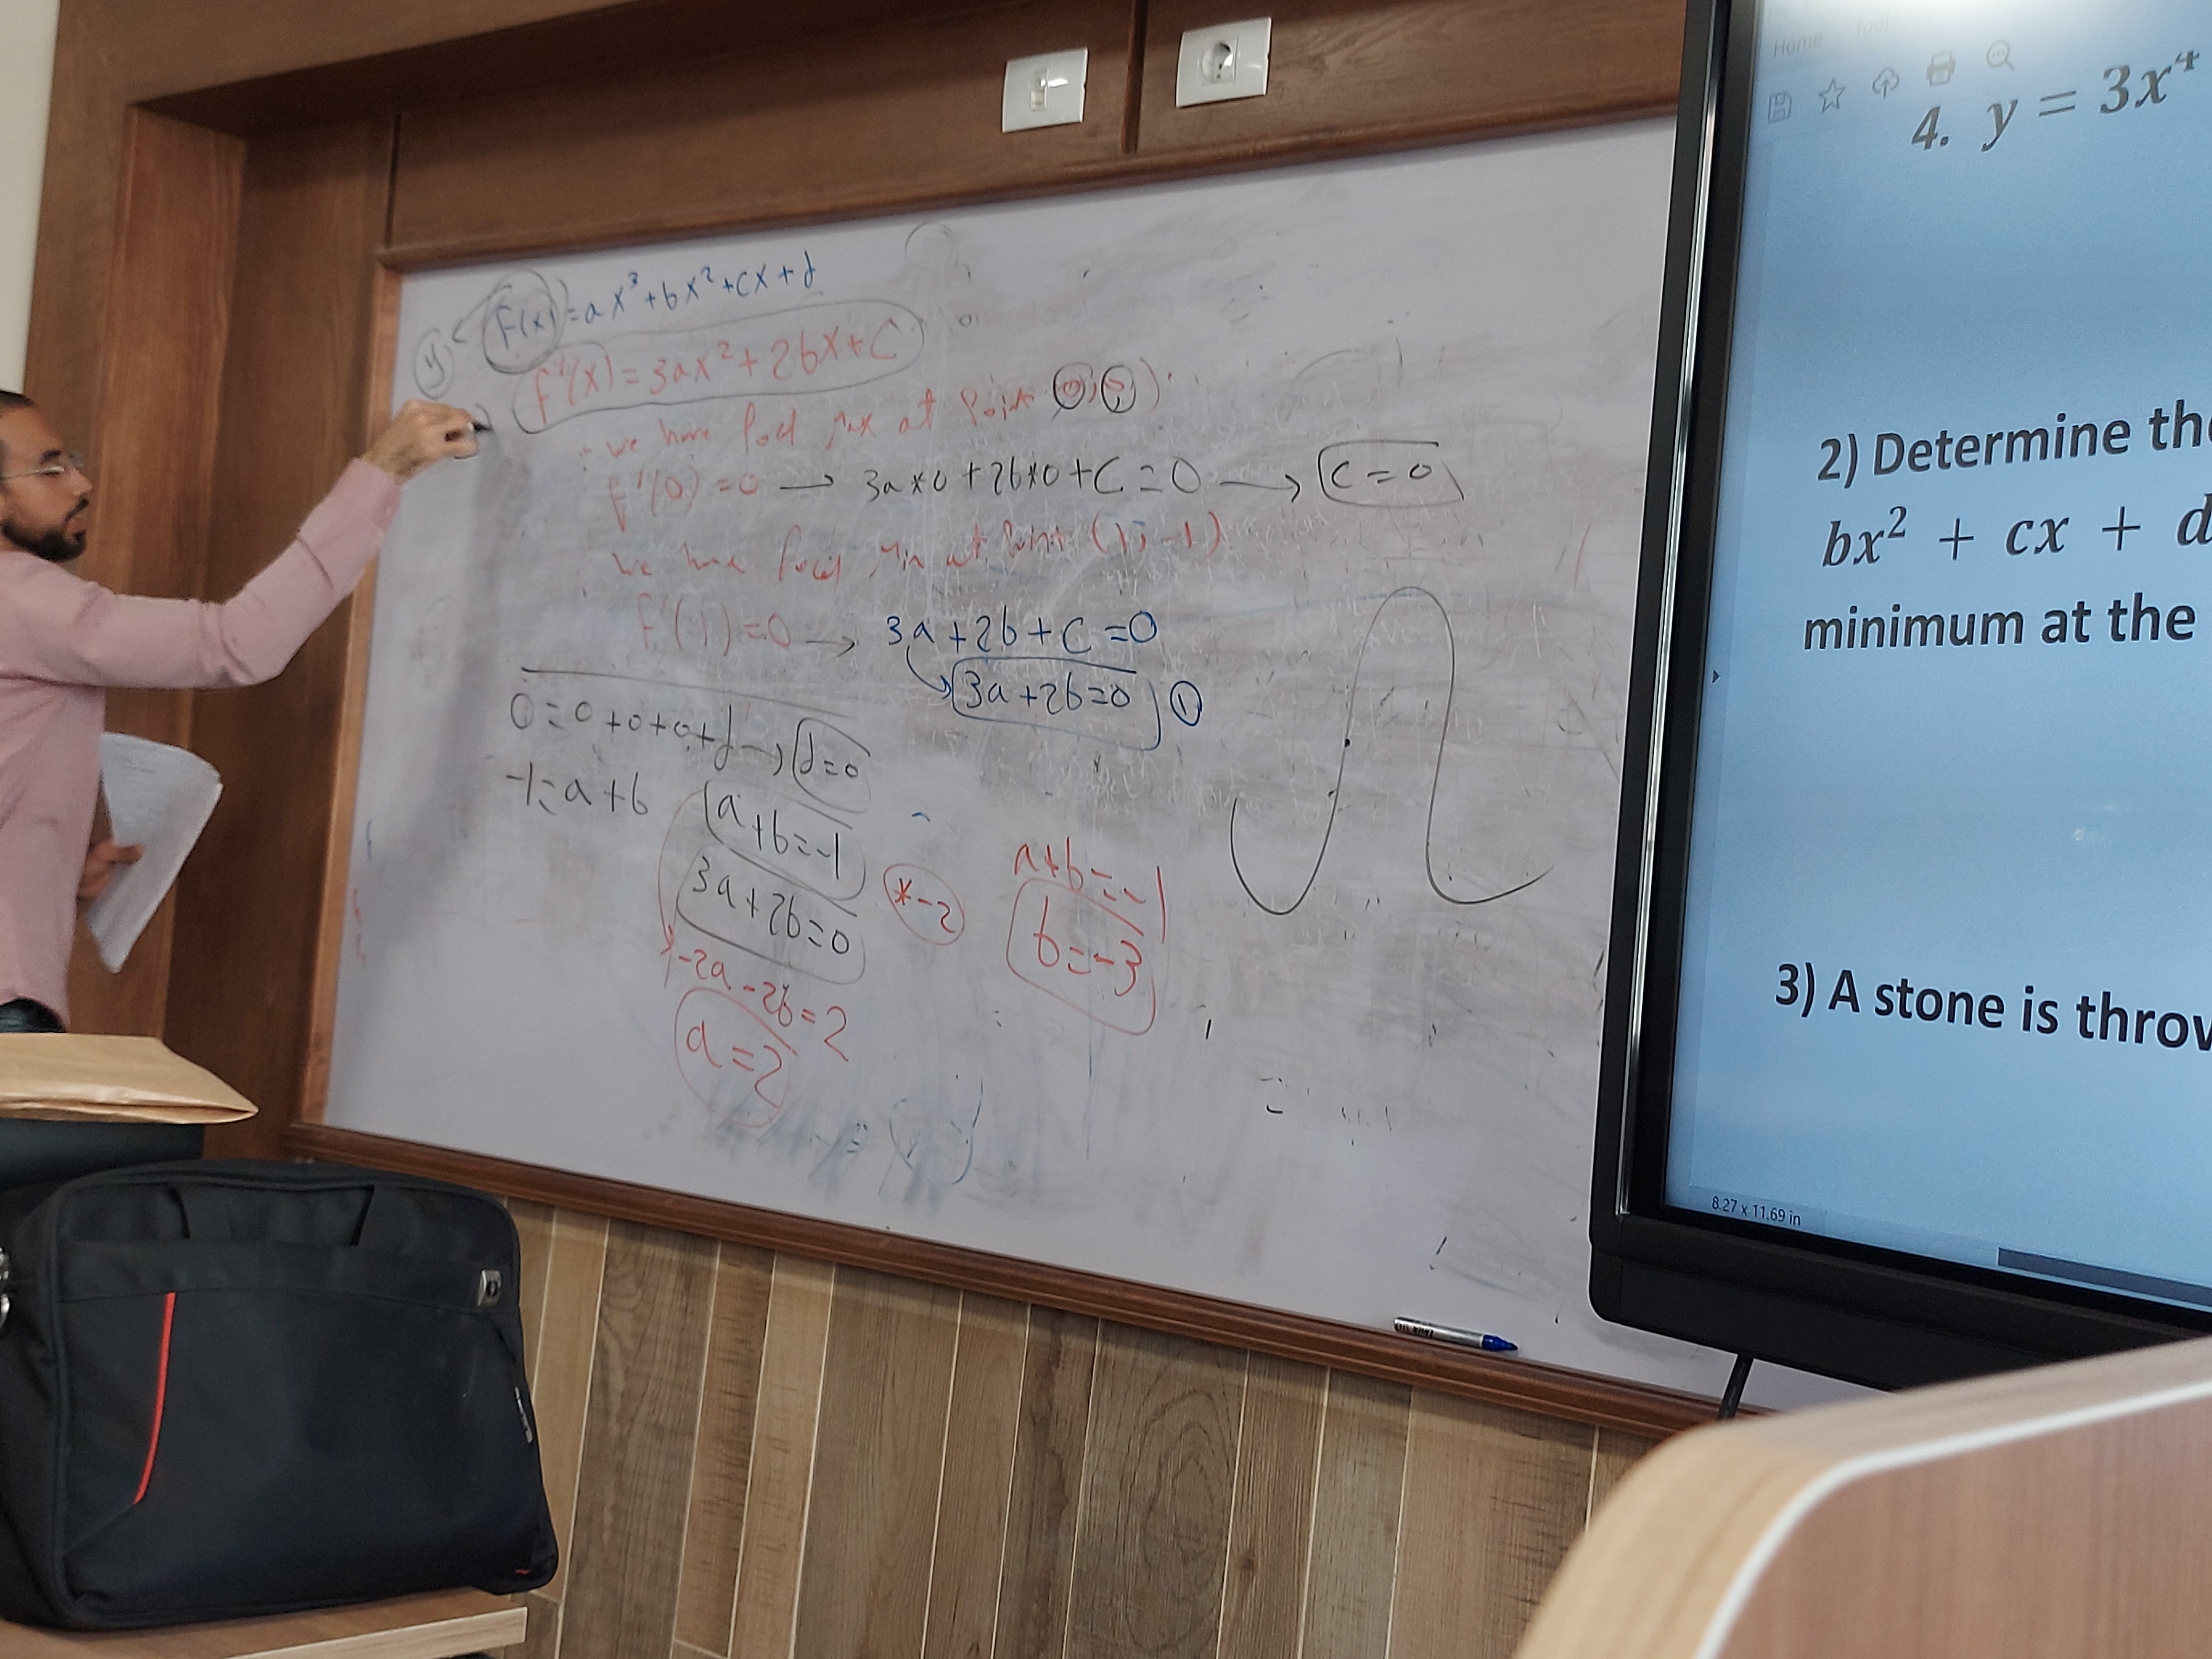 y
f(x) = ax³ + bx² + cx + d
f'(x) = 3ax² + 2bx + C
∵ we have local max at point (0, 0)
f'(0) = 0 → 3a*0 + 2b*0 + C = 0 → C = 0
we have local min at point (1, -1)
f'(1) = 0 → 3a + 2b + C = 0
3a + 2b = 0 ①
0 = 0 + 0 + 0 + d → d = 0
-1 = a + b
a + b = -1
3a + 2b = 0
*-2
-2a - 2b = 2
a = 2
a + b = -1
b = -3
Home Tools
4. y = 3x⁴
2) Determine the
bx² + cx + d
minimum at the
3) A stone is throw
8.27 x 11.69 in